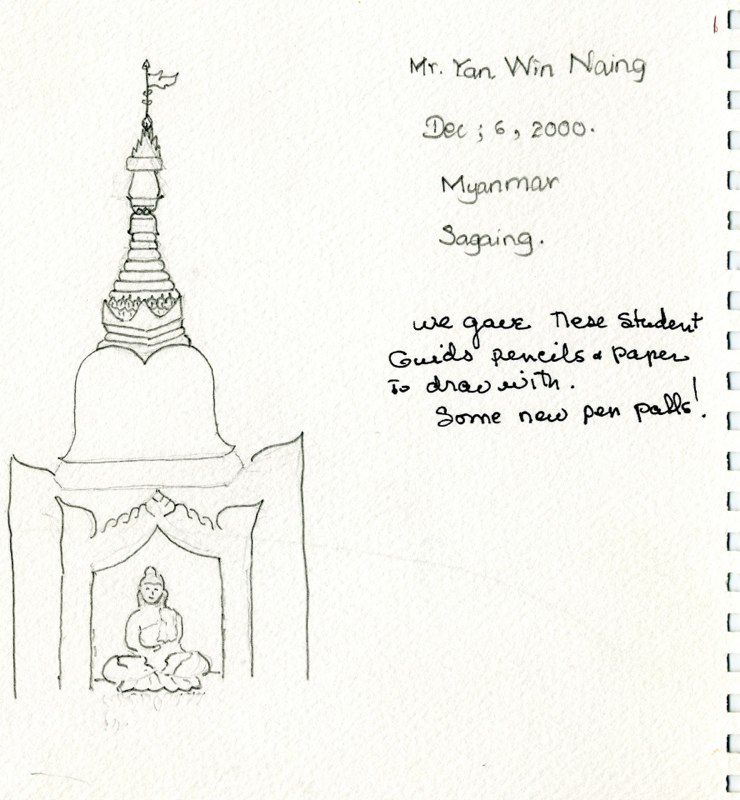 Mr. Yan Win Naing
Dec ; 6 , 2000.
Myanmar
Sagaing.
we gave These Student
Guids pencils & paper
To draw with.
Some new pen palls!